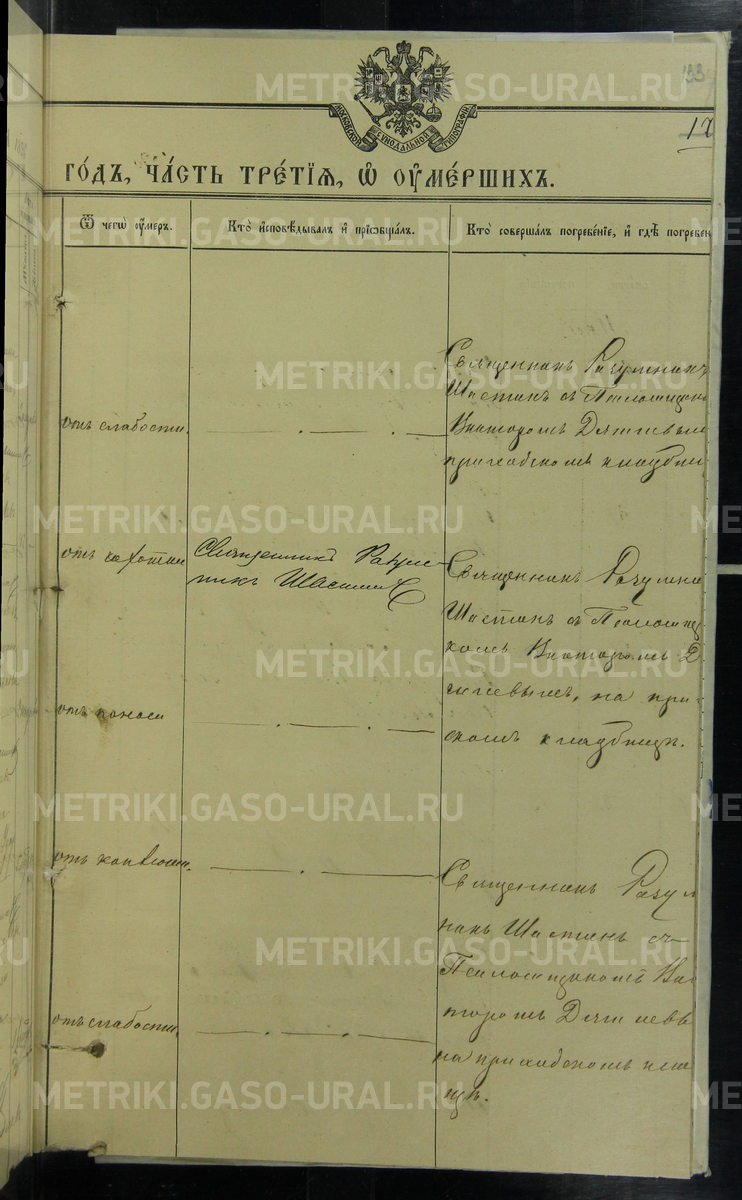 133
12
МОСКОВСКОЙ СѴНОДАЛЬНОЙ ТИПОГРАФІИ
го́дъ, ча́сть тре́тїѧ, ѡ҆ ᲂу҆ме́ршихъ.
Ѿ чегѡ̀ ᲂу҆́меръ.
Кто̀ и҆сповѣ́дывалъ и҆ прїѡбща́лъ.
Кто̀ соверша́лъ погребе́нїе, и҆ гдѣ̀ погребен
отъ слабости.
Священникъ Разумникъ
Шастинъ съ Псаломщик
Викторомъ Дягилевым
приходскомъ кладби
отъ чахотки
Священникъ Разум-
никъ Шастин
Священникъ Разумни
Шастинъ съ Псаломщи
комъ Викторомъ Д
гилевымъ, на при-
скомъ кладбищѣ.
отъ поноса
отъ
Священникъ Разум
никъ Шастинъ съ
Псаломщикомъ Вик
торомъ Дягилевы
на приходскомъ кла
щѣ.
отъ слабости.
METRIKI.GASO-URAL.RU